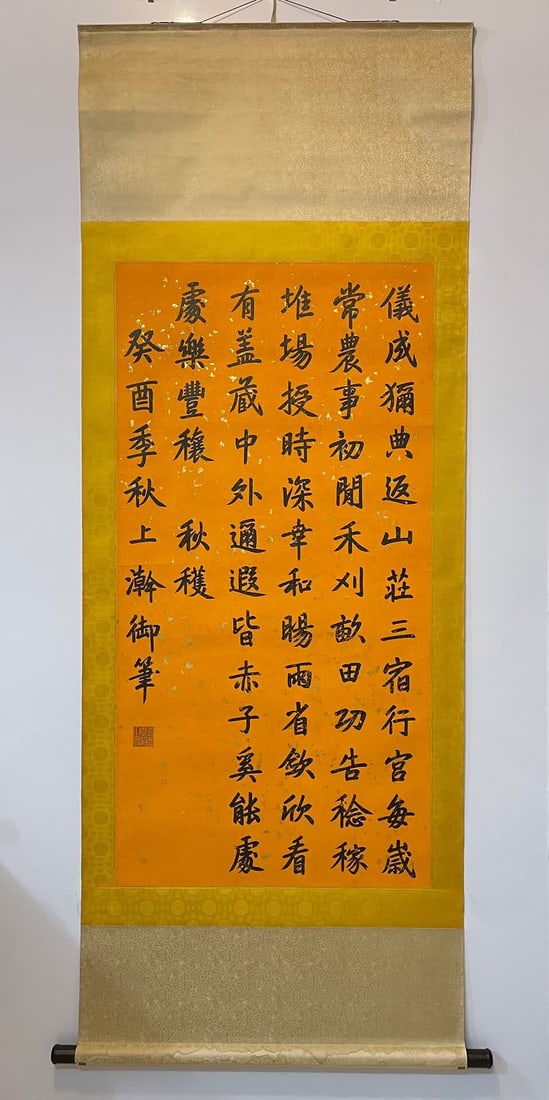 儀成獮典返山莊三宿行宮每歲
常農事初閒禾刈畝田功告稔稼
堆場授時深幸和暘雨省歛欣看
有盖藏中外邇遐皆赤子奚能處
處樂豐穰 秋穫
癸酉季秋上澣御筆